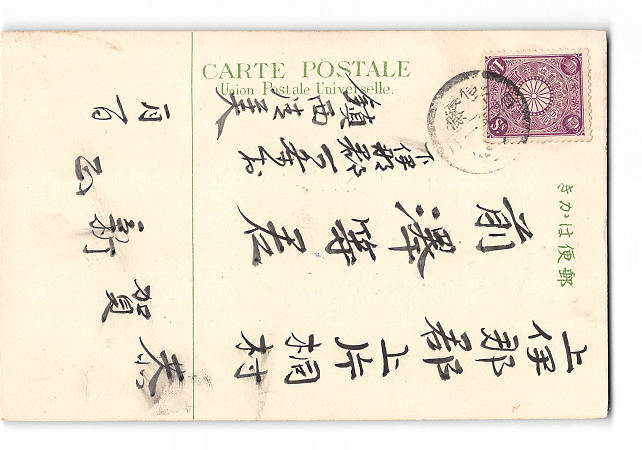 CARTE POSTALE
Union Postale Universelle.
郵便はかき
上伊那郡上片桐村
前澤等君
下伊那郡
鎮西清
恭賀新正